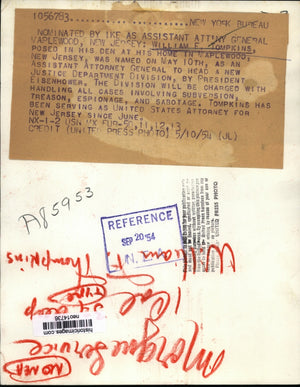 1056793 NEW YORK BUREAU
NOMINATED BY IKE AS ASSISTANT ATTNY GENERAL
MAPLEWOOD, NEW JERSEY: WILLIAM F. TOMPKINS,
POSED IN HIS DEN AT HIS HOME IN MAPLEWOOD,
NEW JERSEY, WAS NAMED ON MAY 10TH, AS AN
ASSISTANT ATTORNEY GENERAL TO HEAD A NEW
JUSTICE DEPARTMENT DIVISION, BY PRESIDENT
EISENHOWER. THE DIVISION WILL BE CHARGED WITH
HANDLING ALL CASES INVOLVING SUBVERSION,
TREASON, ESPIONAGE, AND SABOTAGE. TOMPKINS HAS
BEEN SERVING AS UNITED STATES ATTORNEY FOR
NEW JERSEY SINCE JUNE.
CREDIT (UNITED PRESS PHOTO) 5/10/54 (JL)
A85953
REFERENCE
SEP 20 '54
Thompkins
1 Col
historicimages.com
neo14736
Morgue Service
NO NEA
UNITED PRESS PHOTO